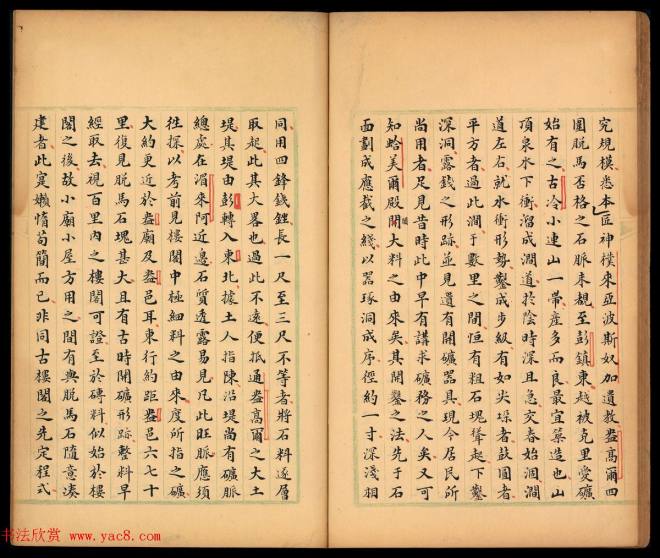 究規模悉本匠神樸來亞波斯奴加遺教盎高爾四
圍脫馬否格之石脈未覩至彭鎮東越被克里愛礦
始有之古冷小連山一帶産多而良最宜築造也山
頂泉水下衝溜成澗道於陰時深且急交春始涸澗
道左右就水衝形勢鑿成步級有如尖垛者鼓圓者
平方者過此澗于數里之間恒有粗石塊聳起下鑿
深洞露錢之形跡並見遺有開礦器具現今居民所
尚用者足見昔時此中早有講求礦務之人矣又可
知蛤美爾殿閣大料之由來矣其開鑿之法先于石
面劃成應裁之綫以器琢洞成序徑約一寸深淺相
同用四鋒錢銼長一尺至三尺不等者將石料逐層
取起此其大畧也過此不遠便抵通盎高爾之大土
堤其堤由彭轉入東北據土人指陳沿堤尚有礦脈
總處在湄來阿近邊石質透露易見凡此旺脈應須
徃探以考前見樓閣中極細料之由來度所指之礦
大約更近於盎廟及盎邑耳東行約距盎邑六七十
里復見脫馬石塊甚大且有古時開礦形跡整料早
經取去視百里內之樓閣可證至於磚料似始於樓
閣之後故小廟小屋方用之間有與脫馬石隨意湊
建者此寔嬾惰苟簡而已非同古樓閣之先定程式
书法欣赏 www.yac8.com